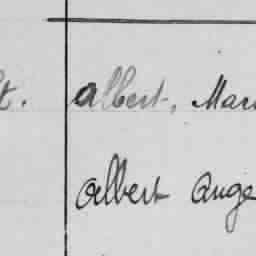 t. Albert, Mar
Albert Ange